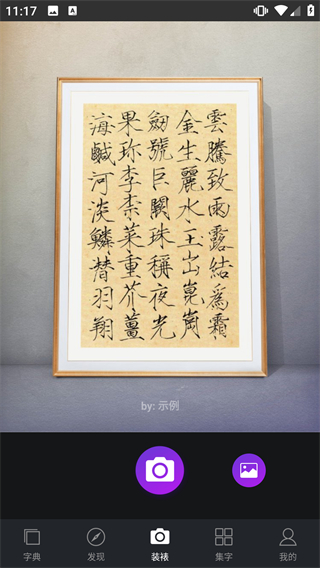 11:17
雲騰致雨露結爲霜
金生麗水玉出崑崗
劒號巨闕珠稱夜光
果珎李柰菜重芥薑
海鹹河淡鱗潛羽翔
by: 示例
字典
发现
装裱
集字
我的